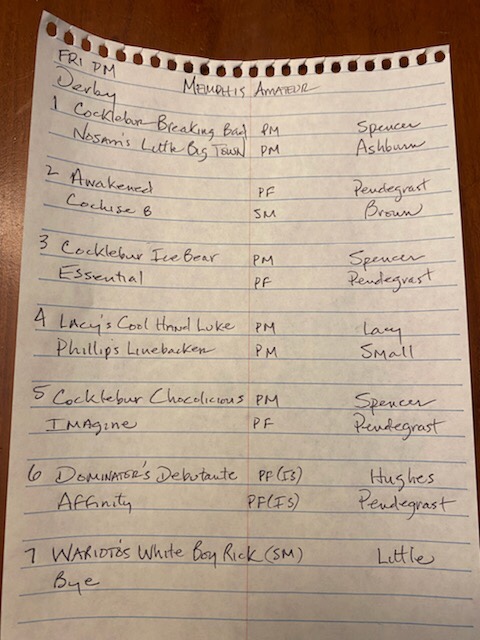 FRI PM
Memphis Amateur
Derby
1 Cocklebur Breaking Bad PM Spencer
Nosam's Little Big Town PM Ashburn
2 Awakened PF Pendegrast
Cochise B SM Brown
3 Cocklebur Ice Bear PM Spencer
Essential PF Pendegrast
4 Lacy's Cool Hand Luke PM Lacy
Phillip's Linebacker PM Small
5 Cocklebur Chocolicious PM Spencer
Imagine PF Pendegrast
6 Dominator's Debutante PF (IS) Hughes
Affinity PF (IS) Pendegrast
7 Warioto's White Boy Rick (SM) Little
Bye